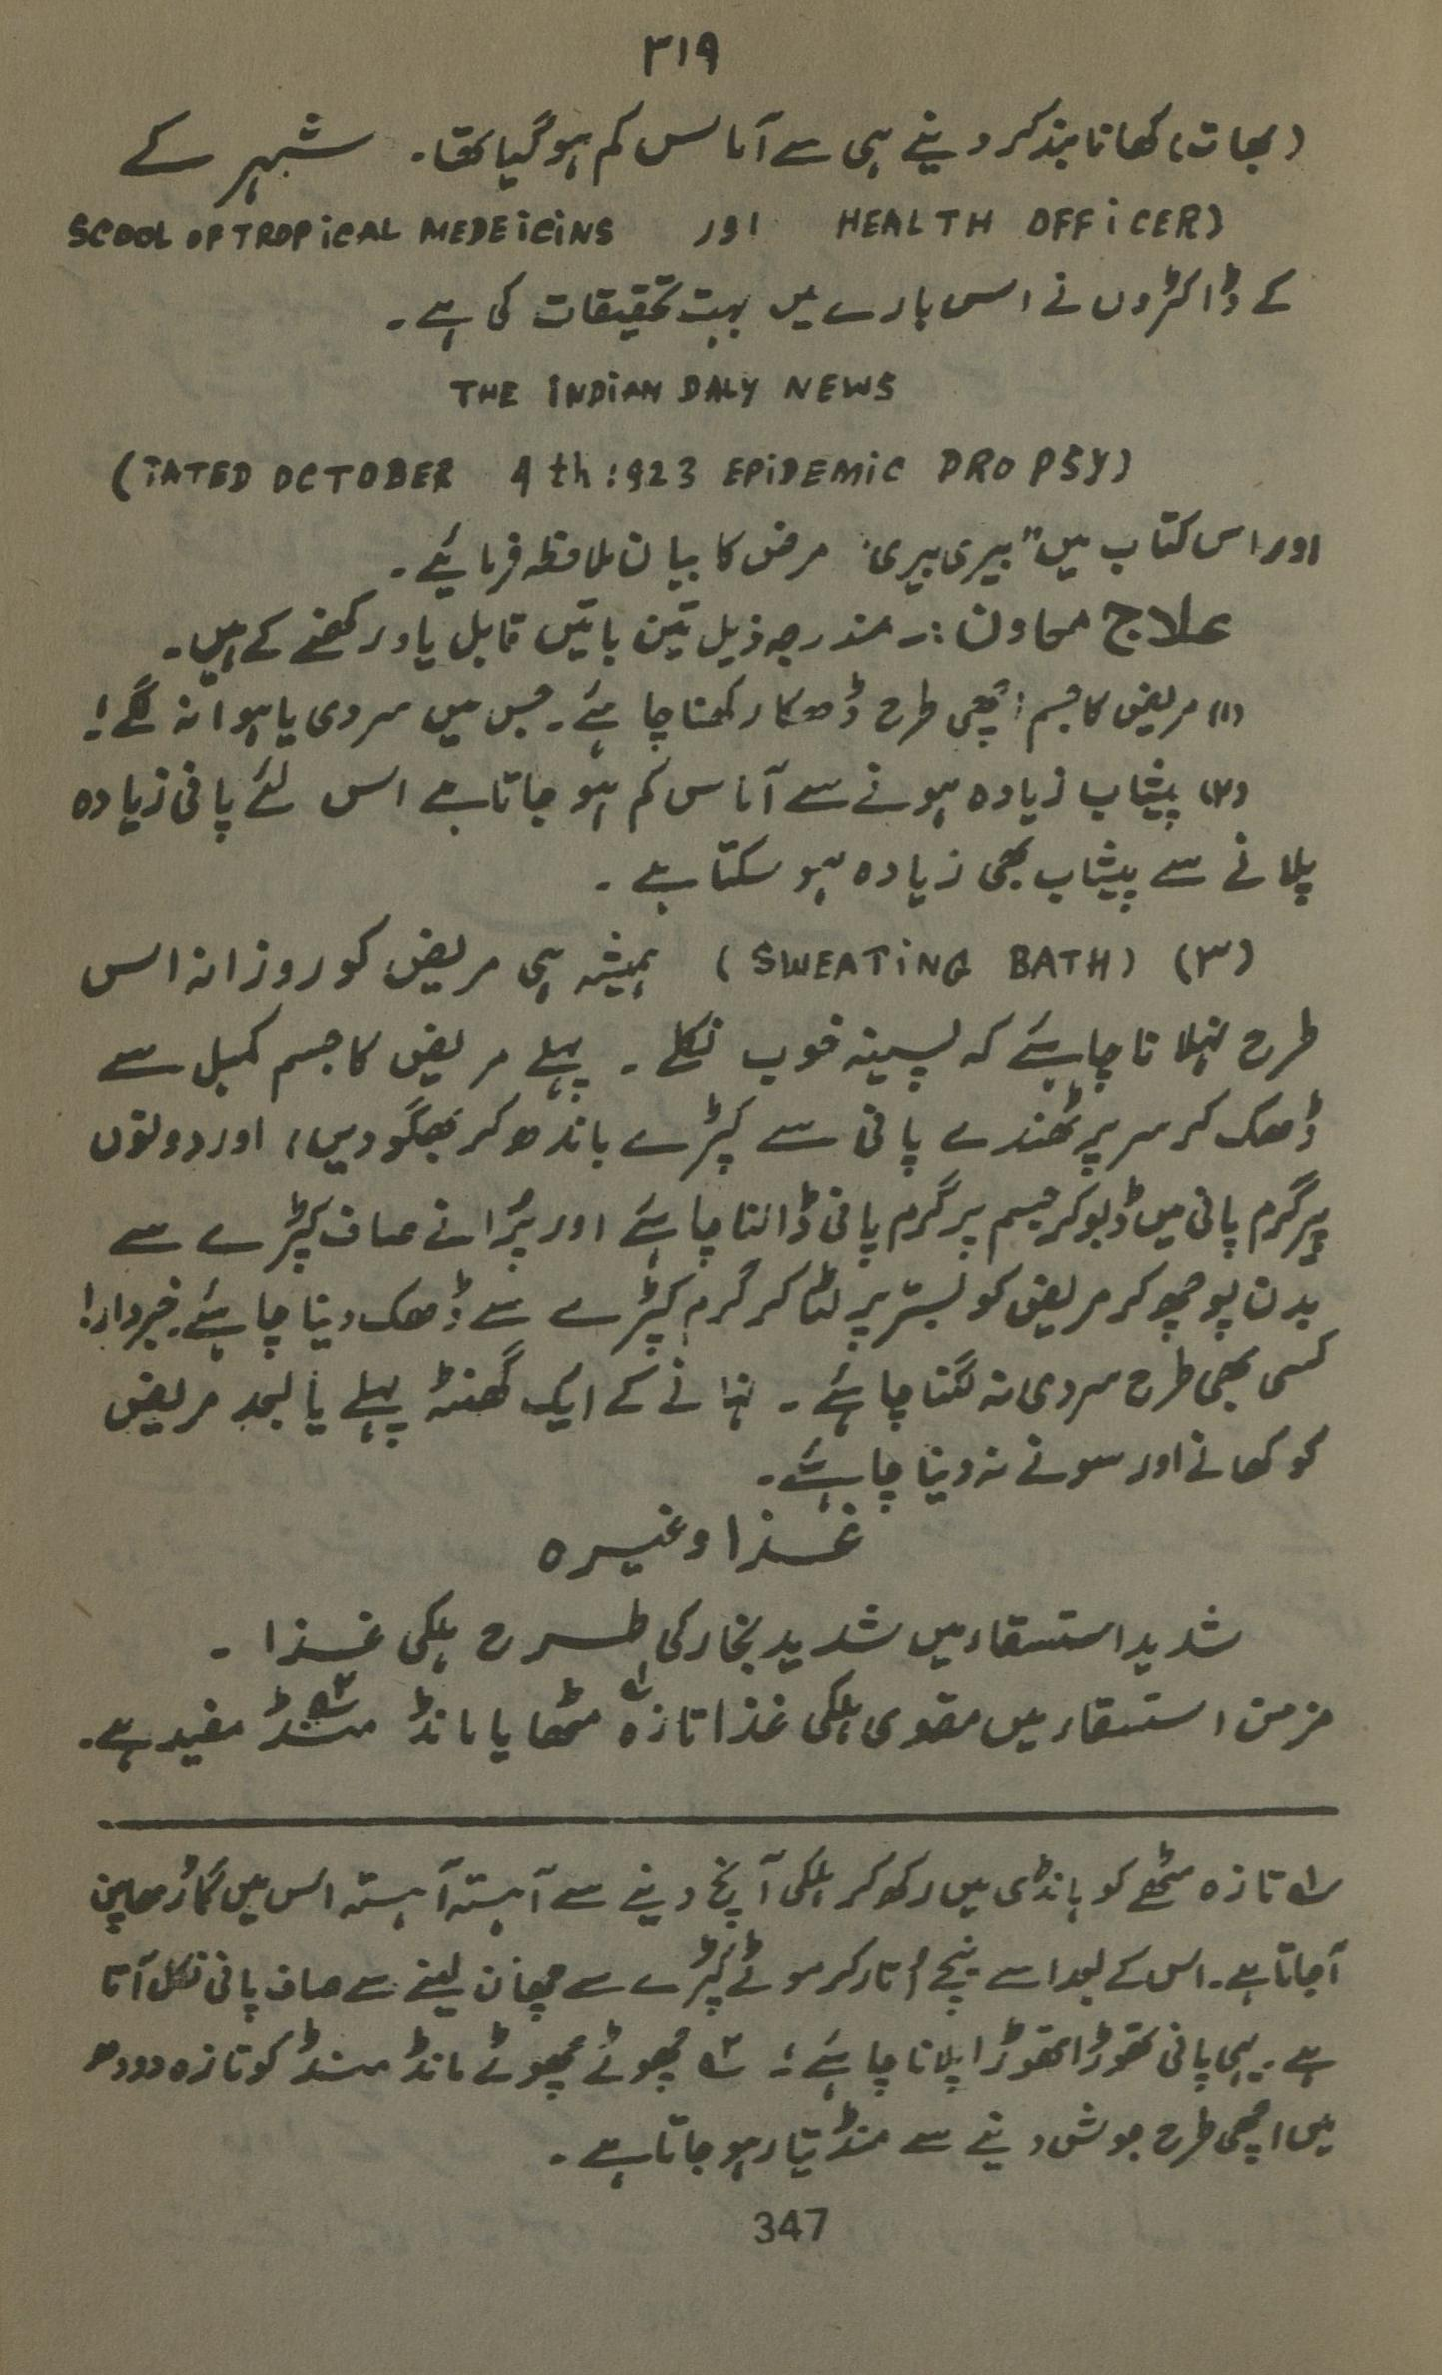 ۳۱۹
(بھات) کھانا بند کر دینے ہی سے آماس کم ہو گیا تھا۔ شہر کے
SCOOL OF TROPICAL MEDEICINS اور HEALTH OFFICER)
کے ڈاکٹروں نے اس بارے میں بہت تحقیقات کی ہے۔
THE INDIAN DALY NEWS
(TATED OCTOBER 4th:923 EPIDEMIC DROPSY)
اور اس کتاب میں "بیری بیری" مرض کا بیان ملاحظہ فرمائیے۔
علاج معاون :۔ مندرجہ ذیل تین باتیں قابل یاد رکھنے کے ہیں۔
(۱) مریض کا جسم اچھی طرح ڈھکا رکھنا چاہئے۔ جس میں سردی یا ہوا نہ لگے!
(۲) پیشاب زیادہ ہونے سے آماس کم ہو جاتا ہے اس لئے پانی زیادہ
پلانے سے پیشاب بھی زیادہ ہو سکتا ہے۔
(۳) (SWEATING BATH) ہمیشہ ہی مریض کو روزانہ اس
طرح نہلانا چاہئے کہ پسینہ خوب نکلے۔ پہلے مریض کا جسم کمبل سے
ڈھک کر سر پر ٹھنڈے پانی سے کپڑے باندھ کر بھگو دیں، اور دونوں
پیر گرم پانی میں ڈبو کر جسم پر گرم پانی ڈالنا چاہئے اور پُرانے صاف کپڑے سے
بدن پوچھ کر مریض کو بستر پر لٹا کر گرم کپڑے سے ڈھک دینا چاہئے۔ خبردار!
کسی بھی طرح سردی نہ لگنا چاہئے۔ نہانے کے ایک گھنٹہ پہلے یا بعد مریض
کو کھانے اور سونے نہ دینا چاہئے۔
غذا وغیرہ
شدید استسقاء میں شدید بخار کی طرح ہلکی غذا۔
مزمن استسقاء میں مقوی ہلکی غذا تازہ ؎۱ مٹھا یا مانڈ منڈ ؎۲ مفید ہے۔
؎۱ تازہ مٹھے کو ہانڈی میں رکھ کر ہلکی آنچ دینے سے آہستہ آہستہ اس میں گاڑھاپن
آجاتا ہے۔ اس کے بعد اسے نیچے اُتار کر موٹے کپڑے سے چھان لینے سے صاف پانی نکل آتا
ہے۔ یہی پانی تھوڑا تھوڑا پلانا چاہئے؛ ؎۲ چھوٹے چھوٹے مانڈ منڈ کو تازہ دودھ
میں اچھی طرح جوش دینے سے منڈ تیار ہو جاتا ہے۔
347